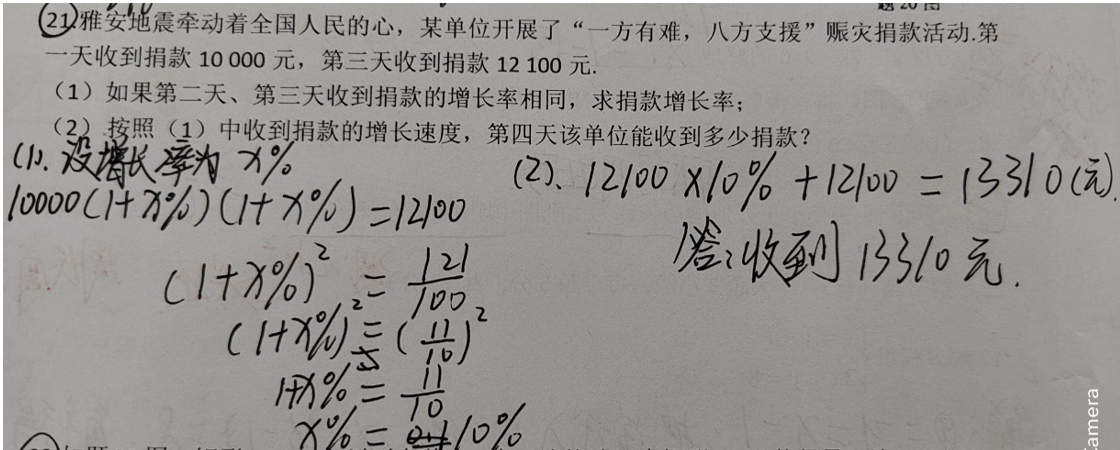 题20图
21.雅安地震牵动着全国人民的心，某单位开展了“一方有难，八方支援”赈灾捐款活动.第
一天收到捐款 10 000 元，第三天收到捐款 12 100 元.
（1）如果第二天、第三天收到捐款的增长率相同，求捐款增长率；
（2）按照（1）中收到捐款的增长速度，第四天该单位能收到多少捐款？
(1). 设增长率为 x%
10000(1+x%)(1+x%)=12100
(1+x%)² = 121/100
(1+x%)² = (11/10)²
1+x% = 11/10
x% = 10%
(2)、12100×10%+12100=13310(元).
答：收到13310元.
Camera